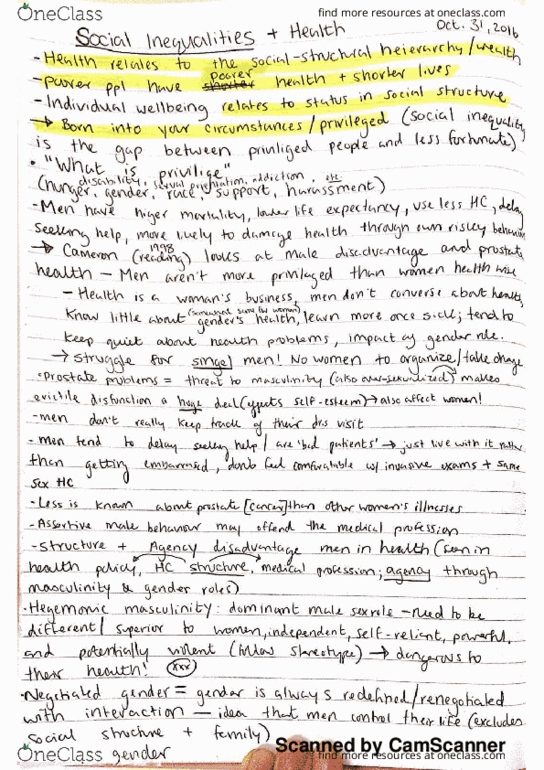 OneClass
find more resources at oneclass.com
Oct. 31, 2016
Social Inequalities + Health
- Health relates to the social-structural heierarchy/wealth
- poorer ppl have poorer shorter health + shorter lives
- Individual wellbeing relates to status in social structure
→ Born into your circumstances/privileged (social inequality
is the gap between privliged people and less fortunate)
• "What is privilige"
disability, sexual orientation, addiction, etc
(hunger, gender, race, support, harassment)
- Men have higer mortality, lower life expectancy, use less HC, delay
seeking help, more likely to damage health through own riskey behaviour
1998
→ Cameron (reading) looks at male disadvantage and prostate
health - Men aren't more privlaged than women health wise
- Health is a woman's business, men don't converse about health,
(somewhat same for women)
know little about gender's health, learn more once sick; tend to
keep quiet about health problems, impact of gender role.
→ struggle for singel men! No women to organize/take charge
• Prostate problems = threat to masculinity (also over-sexualized) makes
erictile disfunction a huge deal (effects self-esteem) → also affect women!
- men don't really keep track of their drs visit
- men tend to delay seeking help / are 'bad patients' → just live with it rather
than getting embarrased, don't feel comfortable w/ invasive exams + same
sex HC
- Less is known about prostate [cancer] than other women's illnesses
- Assertive male behaviour may offend the medical profession
- structure + Agency disadvantage men in health (seen in
health policy, HC structure, medical profession; agency through
masculinity & gender roles)
• Hegemonic masculinity: dominant male sexrole - need to be
different/superior to women, independent, self-reliant, powerful,
and potentially violent (follow stereotype) → dangerous to
their health! xxx
• Negotiated gender = gender is always redefined/renegotiated
with interaction - idea that men control their life (excludes
social structure + family)
gender
Scanned by CamScanner
OneClass
find more resources at oneclass.com